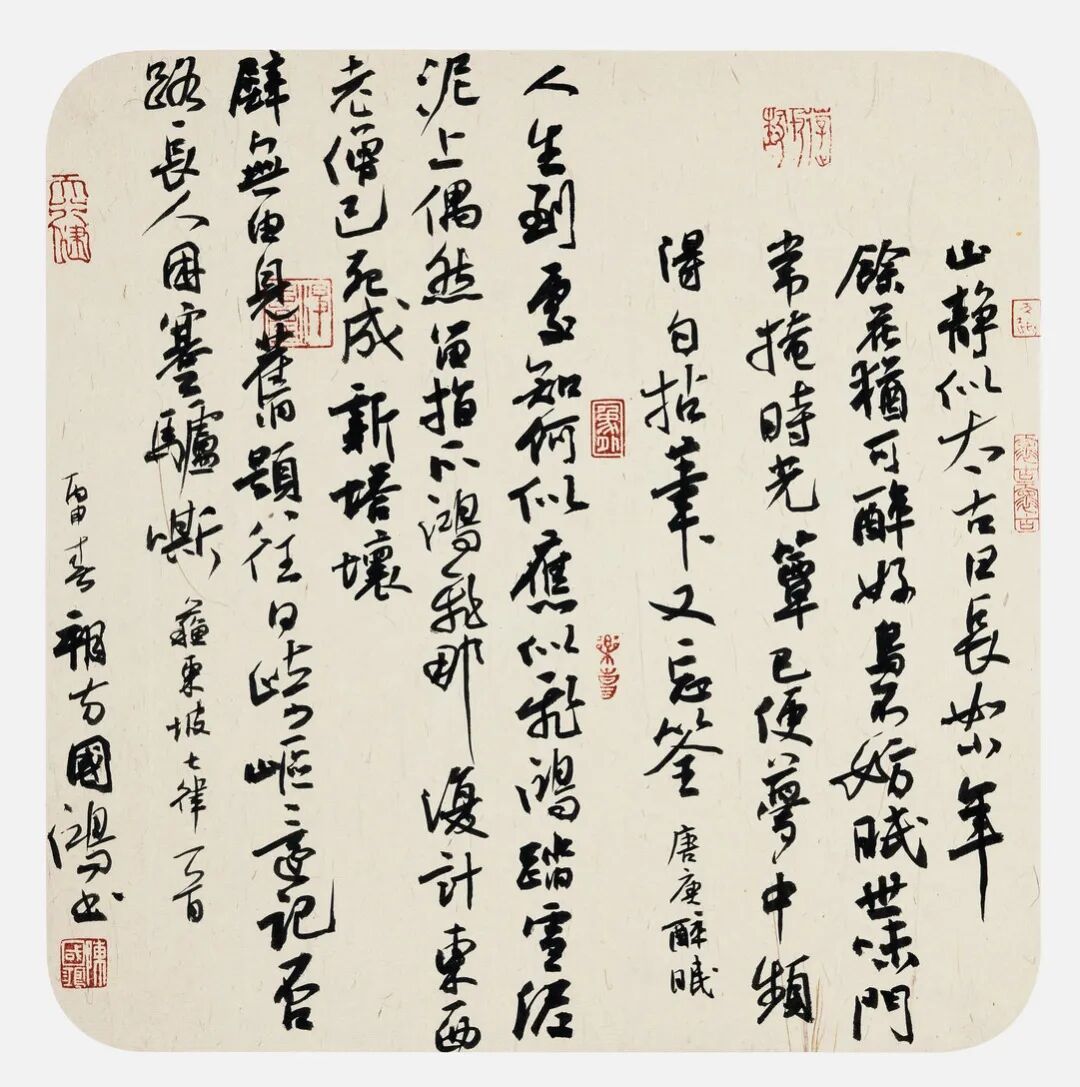 山静似太古日長如小年
餘花猶可醉好鳥不妨眠世味門
常掩時光簟已便夢中頻
得句拈筆又忘筌 唐庚醉眠
人生到處知何似應似飛鴻踏雪泥
泥上偶然留指爪鴻飛那復計東西
老僧已死成新塔壞
壁無由見舊題往日崎嶇還記否
路長人困蹇驢嘶 蘇東坡七律一首
丙申春 國鴻书
天行健
陳國鴻